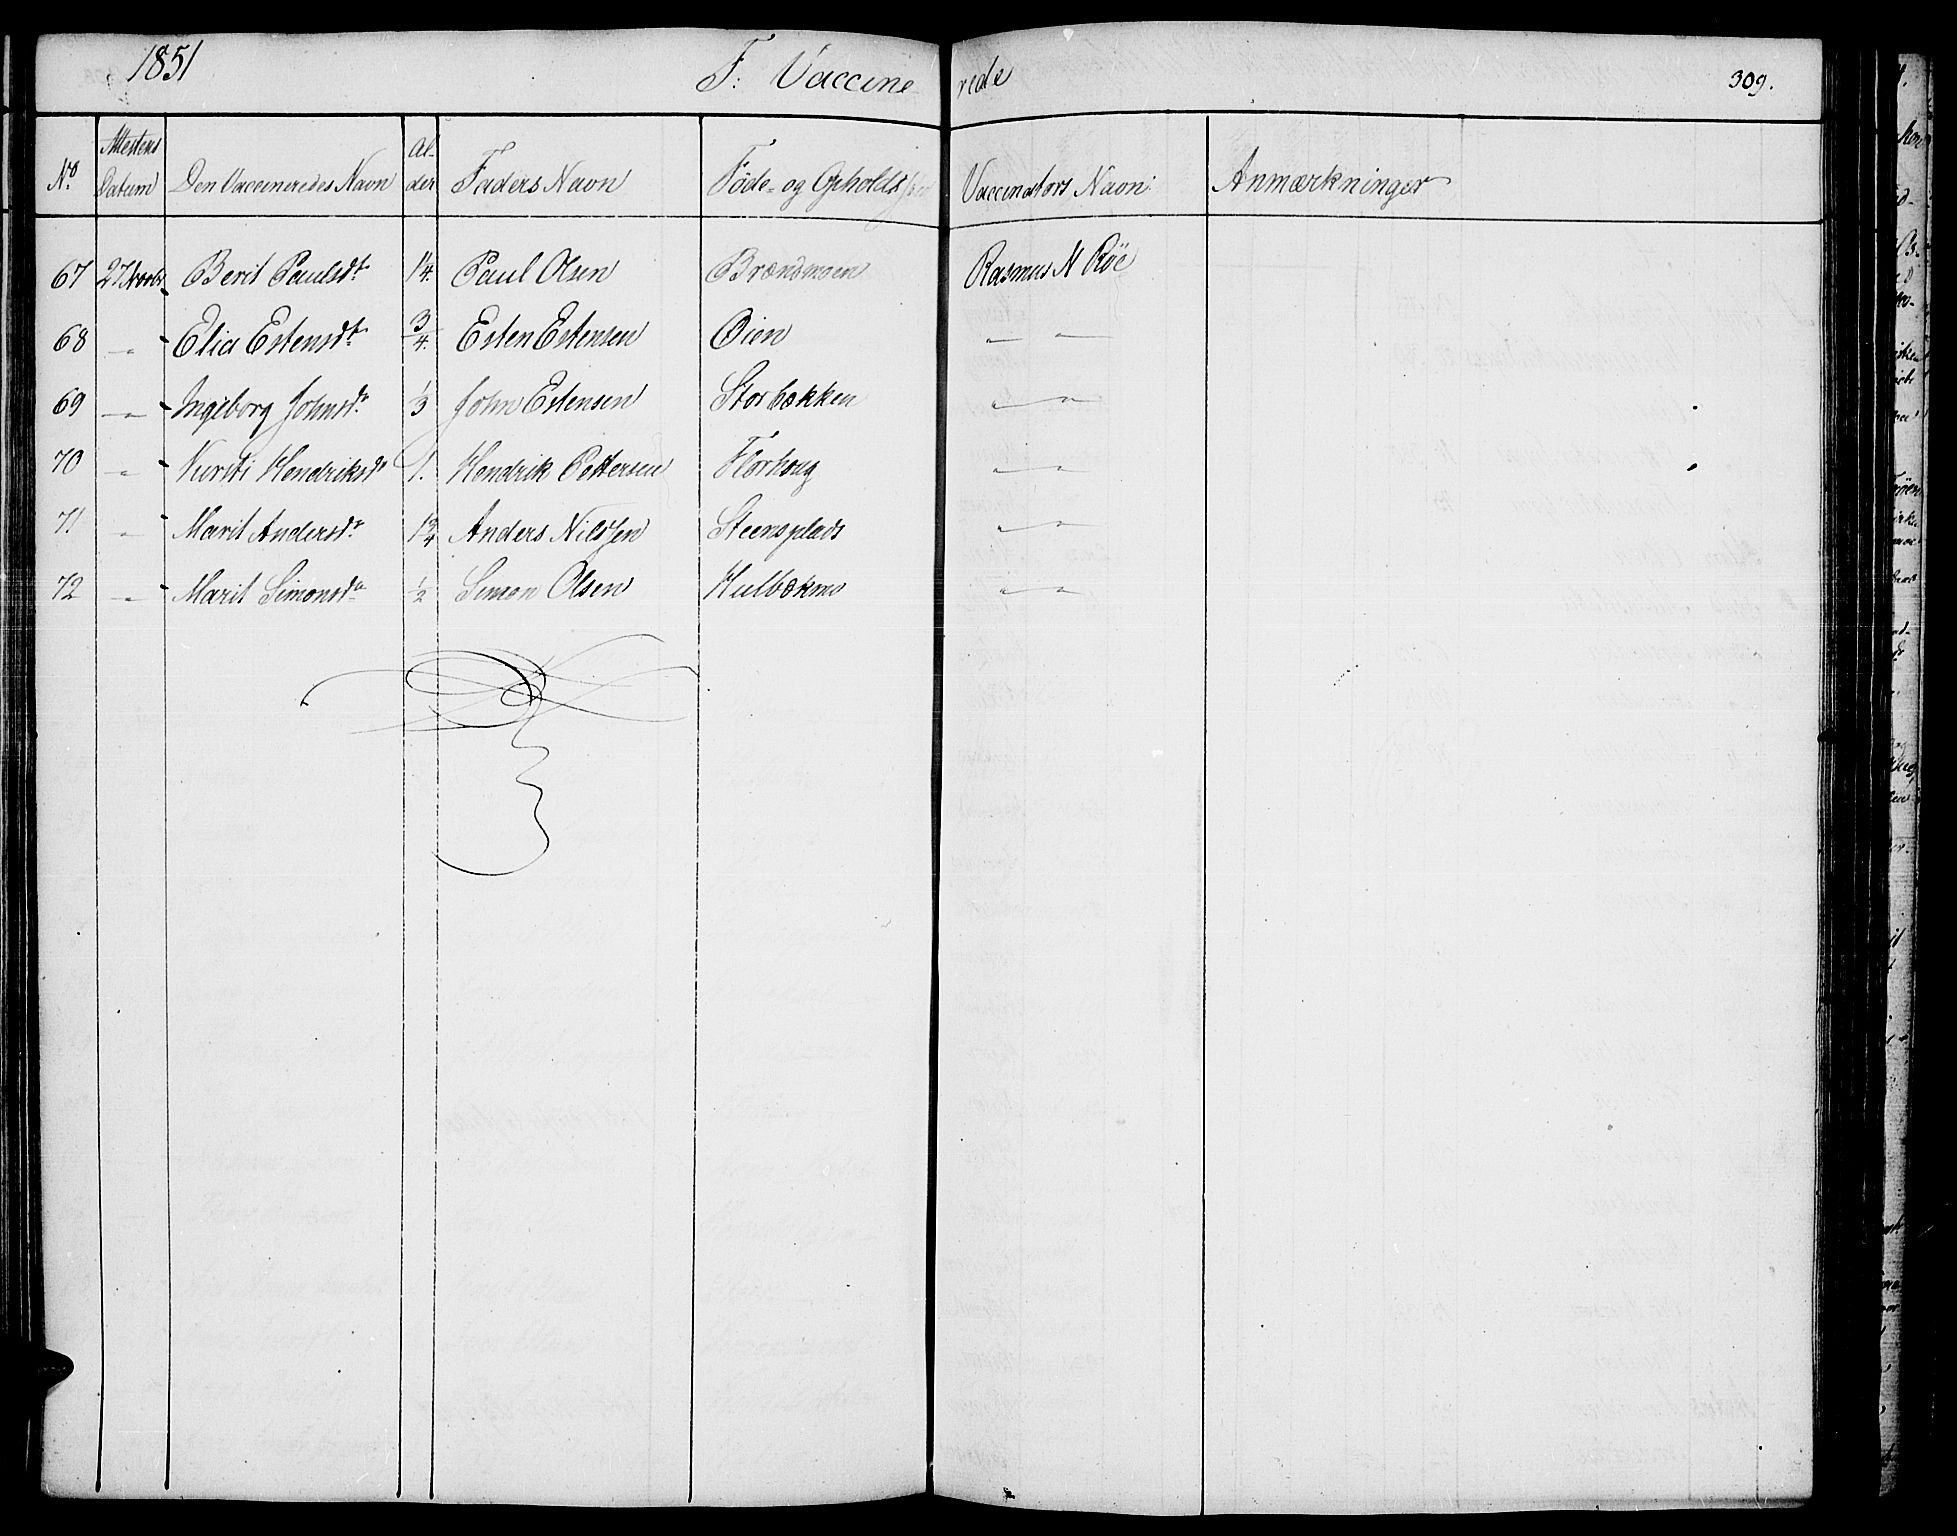 1851 F. Vaccinerede 309.
No. Attestens Datum Den Vaccineredes Navn Alder Faders Navn Føde- og Opholds Vaccinators Navn: Anmærkninger
67 27 Novbr Berit Paulsdtr 1¼ Paul Olsen Brændmoen Rasmus N Röe
68 〃 Elia Estensdtr ¾ Esten Estensen Øien 〃 〃
69 〃 Ingeborg Johnsdr ⅓ John Estensen Storbækken 〃 〃
70 〃 Kirsti Hendriksdr 1. Hendrik Pettersen Florhoug 〃 〃
71 〃 Marit Andersdr 1¾ Anders Nilssen Steensplads 〃 〃
72 〃 Marit Simonsdr ½ Simon Olsen Kulbækmo 〃 〃